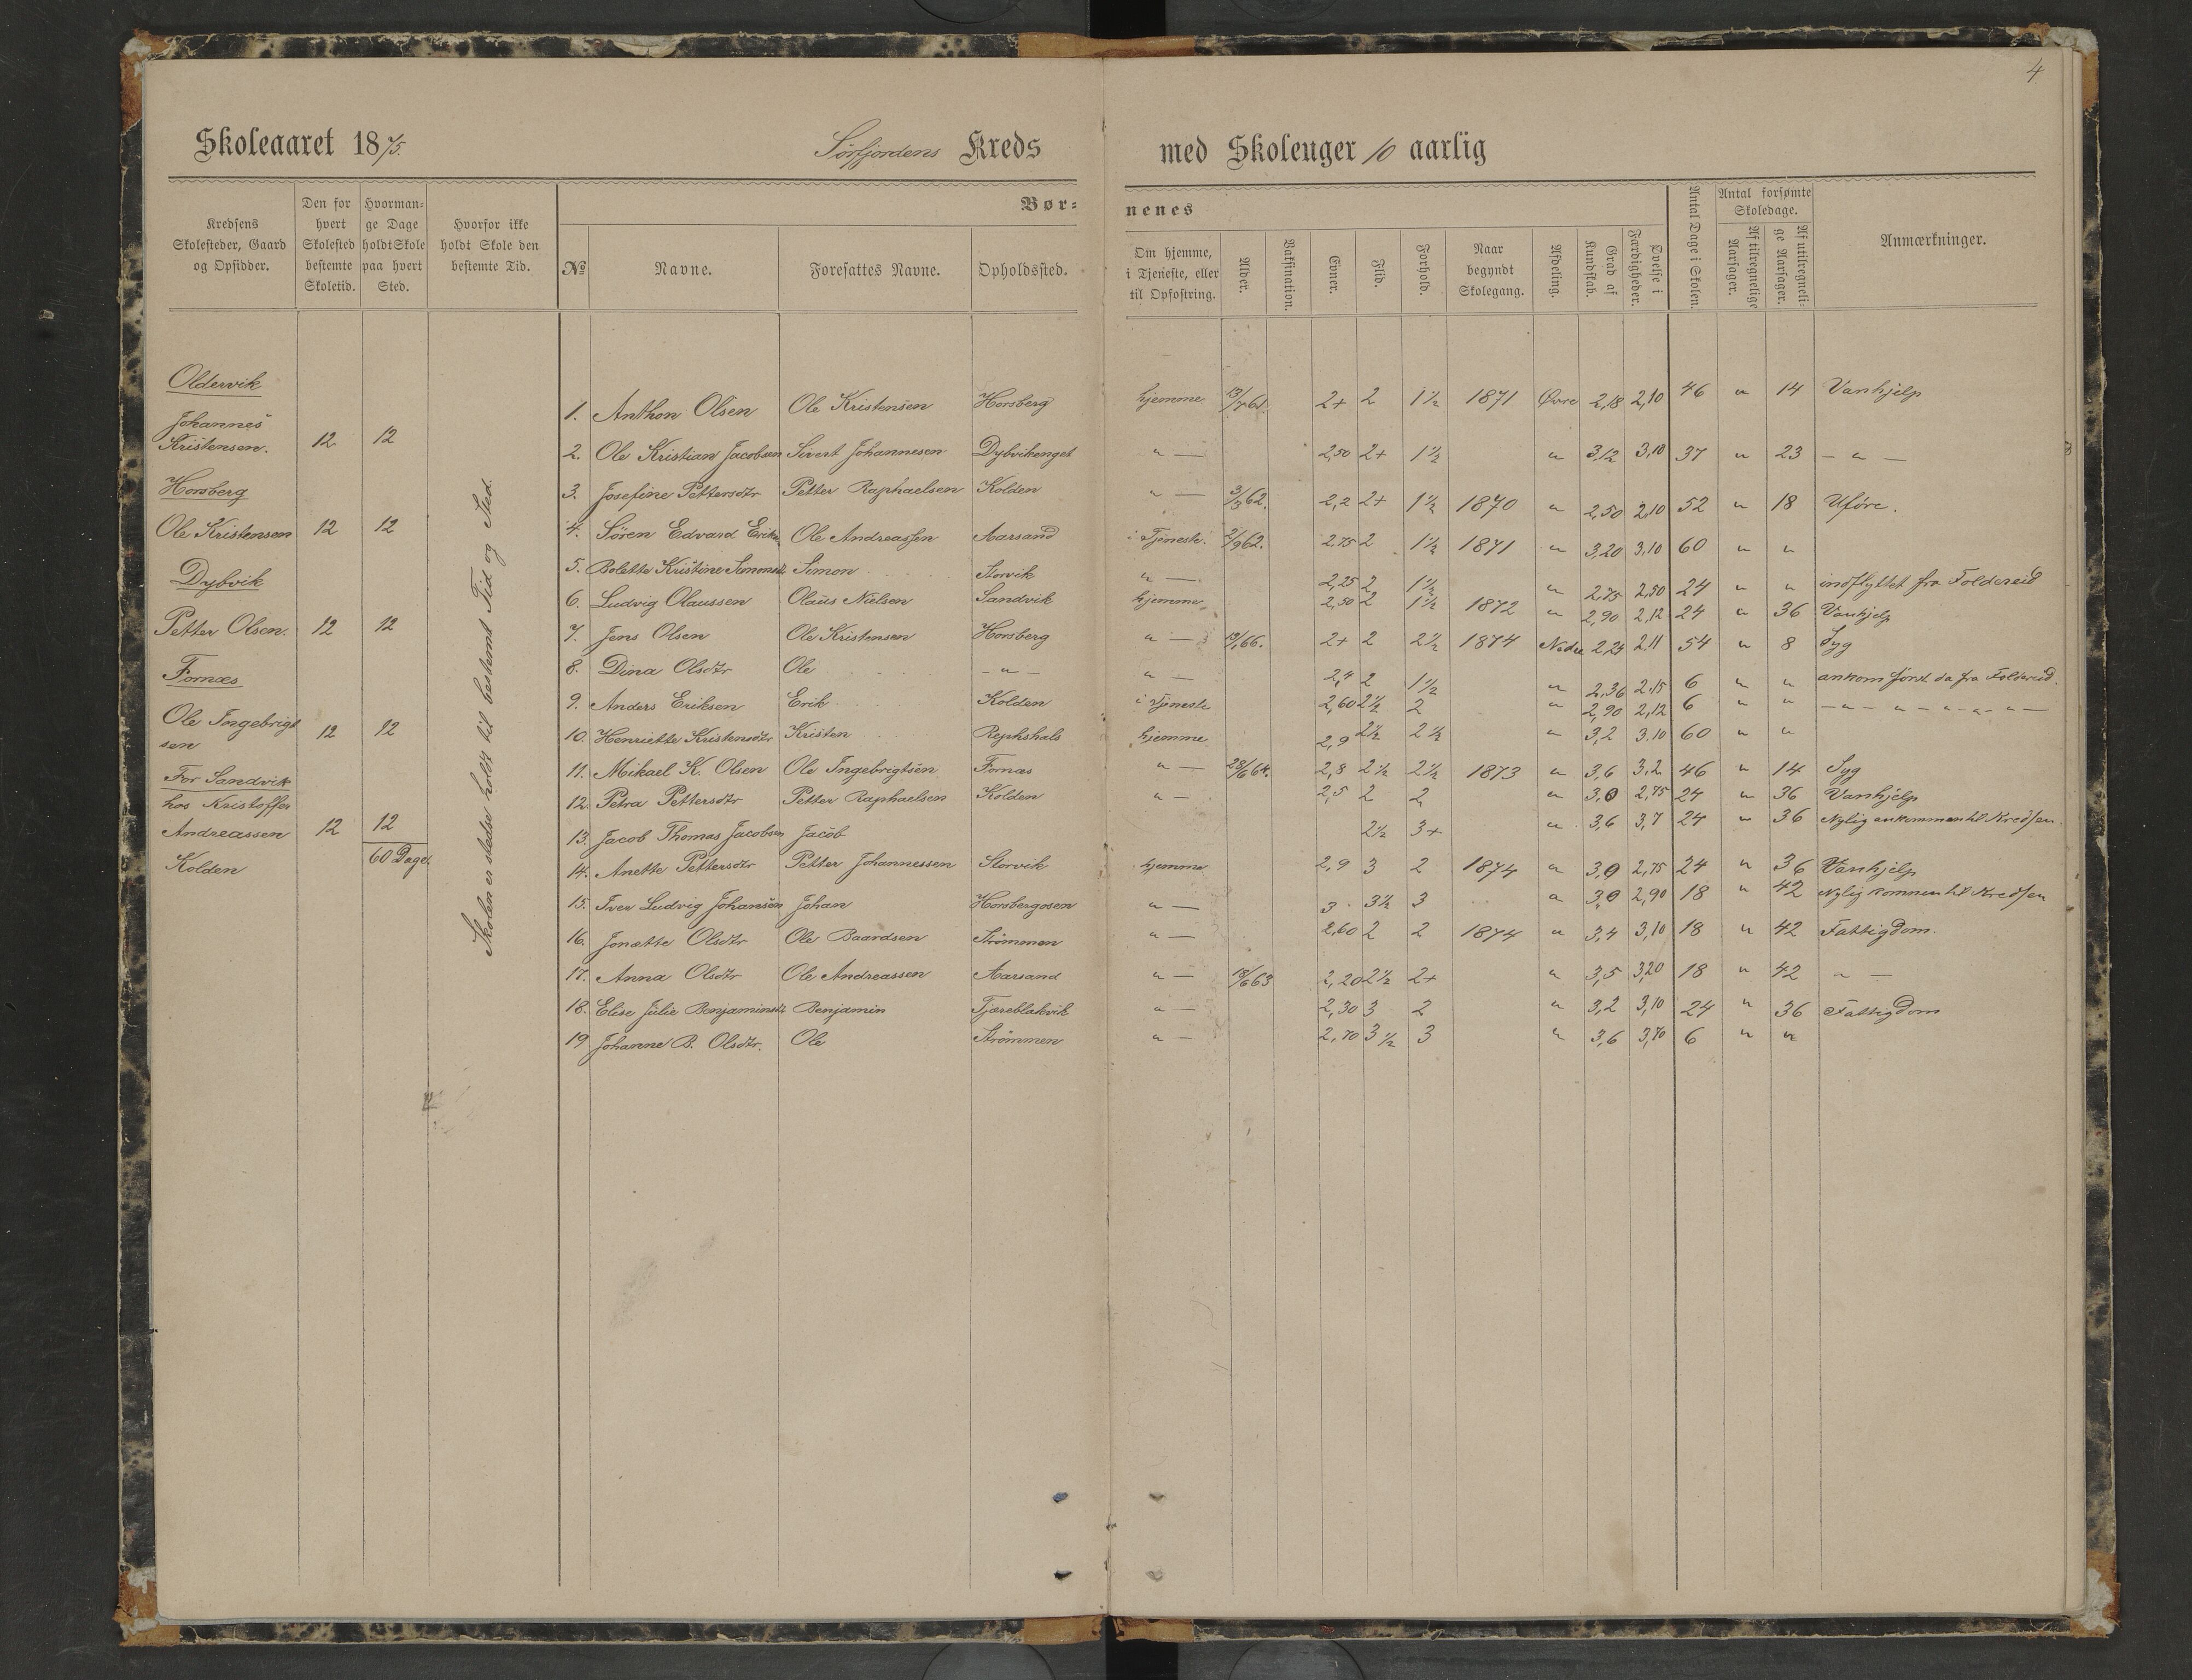 4
Skoleaaret 1875. Sörfjordens Kreds med Skoleuger 10 aarlig
Kredsens Skolesteder, Gaard og Opsidder.
Den for hvert Skolested bestemte Skoletid.
Hvormange Dage holdt Skole paa hvert Sted.
Hvorfor ikke holdt Skole den bestemte Tid.
Børnenes
No
Navne.
Foresattes Navne.
Opholdssted.
Om hjemme, i Tjeneste, eller til Opfostring.
Alder.
Vaksination.
Evner.
Flid.
Forhold.
Naar begyndt Skolegang.
Afdeling.
Grad af Kundskab.
Øvelse i Færdigheder.
Antal Dage i Skolen.
Antal forsømte Skoledage.
Af tilregnelige Aarsager.
Af utilregnelige Aarsager.
Anmærkninger.
Oldervik
Johannes
Kristensen. 12 12
Horsberg
Ole Kristensen 12 12
Dybvik
Petter Olsen. 12 12
Fornæs
Ole Ingebrigt
sen 12 12
For Sandvik
hos Kristoffer
Andreassen 12 12
Kolden 60 Dage.
Skolen er stedse holdt til bestemt Tid og Sted.
1. Anthon Olsen Ole Kristensen Horsberg hjemme 13/7 61. 2+ 2 1½ 1871 Øvre 2,18 2,10 46 " 14 Vanhjelp
2. Ole Kristian Jacobsen Sivert Johannesen Dybvikenget " — 2,50 2+ 1½ " 3,12 3,10 37 " 23 — " —
3. Josefine Pettersdtr Petter Raphaelsen Kolden " — 3/3 62. 2,2 2+ 1½ 1870 " 2,50 2,10 52 " 18 Uföre.
4. Sören Edvard Eriks. Ole Andreassen Aarsand i Tjeneste. 2/9 62. 2,75 2 1½ 1871 " 3,20 3,10 60 " "
5. Bolette Kristine Simonsdtr Simon Storvik " — 2,25 2 1½ " 2,75 2,50 24 " " indflyttet fra Foldereid
6. Ludvig Olaussen Olaus Nielsen Sandvik hjemme 2,50 2 1½ 1872 " 2,90 2,12 24 " 36 Vanhjelp
7. Jens Olsen Ole Kristensen Horsberg " — 19/1 66. 2+ 2 2½ 1874 Nedre 2,24 2,11 54 " 8 Syg
8. Dina Olsdtr Ole — " — " — 2,4 2 1½ " 2,36 2,15 6 " " ankom först da fra Foldereid.
9. Anders Eriksen Erik Kolden i Tjeneste 2,60 2½ 2 " 2,90 2,12 6 " " — " — " — " — " — " —
10. Henriette Kristensdtr Kristen Rephshals hjemme 2,9 2½ 2½ " 3,2 3,10 60 " "
11. Mikael K. Olsen Ole Ingebrigtsen Fornæs " — 28/6 64. 2,8 2½ 2½ 1873 " 3,6 3,2 46 " 14 Syg
12. Petra Pettersdtr Petter Raphaelsen Kolden " — 2,5 2 2 " 3,0 2,75 24 " 36 Vanhjelp
13. Jacob Thomas Jacobsen Jacob 2½ 3+ " 3,6 3,7 24 " 36 Nylig ankommen til Kredsen.
14. Anette Pettersdtr Petter Johannessen Storvik hjemme 2,9 3 2 1874 " 3,0 2,75 24 " 36 Vanhjelp
15. Iver Ludvig Johansen Johan Horsbergosen " — 3 3½ 3 " 3,0 2,90 18 " 42 Nylig kommen til Kredsen
16. Jonette Olsdtr Ole Baardsen Strömmen " — 2,60 2 2 1874 " 3,4 3,10 18 " 42 Fattigdom.
17. Anna Olsdtr Ole Andreassen Aarsand " — 18/6 63 2,20 2½ 2+ " 3,5 3,20 18 " 42 " —
18. Elise Julie Benjaminsdtr Benjamin Tjæreblakvik " — 2,30 3 2 " 3,2 3,10 24 " 36 Fattigdom
19 Johanne B. Olsdtr. Ole Strömmen " — 2,70 3½ 3 " 3,6 3,70 6 " "